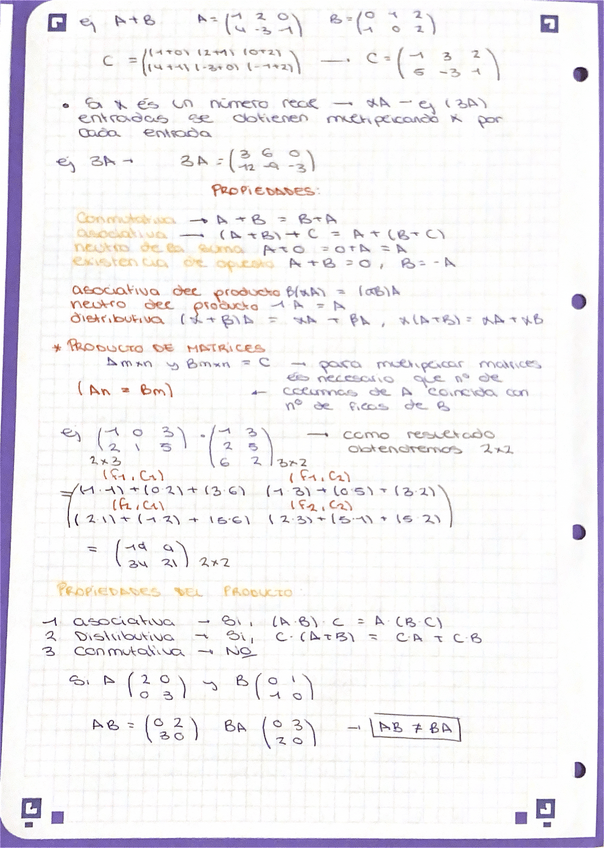 ej A+B A=(1 2 0 / 4 -3 -1) B=(0 1 2 / 1 0 2)
C = ((1+0) (2+1) (0+2) / (4+1) (-3+0) (-1+2)) → C=(1 3 2 / 5 -3 1)
• Si α es un número real → αA - ej (3A)
entradas se obtienen multiplicando α por
cada entrada
ej 3A → 3A=(3 6 0 / 12 -9 -3)
PROPIEDADES:
Conmutativa → A+B = B+A
asociativa → (A+B)+C = A+(B+C)
neutro de la suma A+0 = 0+A = A
existencia de opuesto A+B=0, B=-A
asociativa del producto β(αA) = (αβ)A
neutro del producto 1A = A
distributiva (α+β)A = αA + βA, α(A+B) = αA+αB
* PRODUCTO DE MATRICES
Amxn y Bmxn = C → para multiplicar matrices
es necesario que nº de
(An = Bm) ← columnas de A coincida con
nº de filas de B
ej (1 0 3 / 2 1 5) · (1 3 / 2 5 / 6 2) → como resultado
obtendremos 2x2
2x3 3x2
(F1, C1) (F1, C2)
=((1·1)+(0·2)+(3·6) (1·3)+(0·5)+(3·2)
(F2, C1) (F2, C2)
(2·1)+(1·2)+(5·6) (2·3)+(5·1)+(5·2))
= (19 9 / 34 21) 2x2
PROPIEDADES DEL PRODUCTO:
1 asociativa → Si, (A·B)·C = A·(B·C)
2 Distributiva → Si, C·(A+B) = C·A + C·B
3 Conmutativa → NO
Si A (2 0 / 0 3) y B (0 1 / 1 0)
AB = (0 2 / 3 0) BA (0 3 / 2 0) → AB ≠ BA